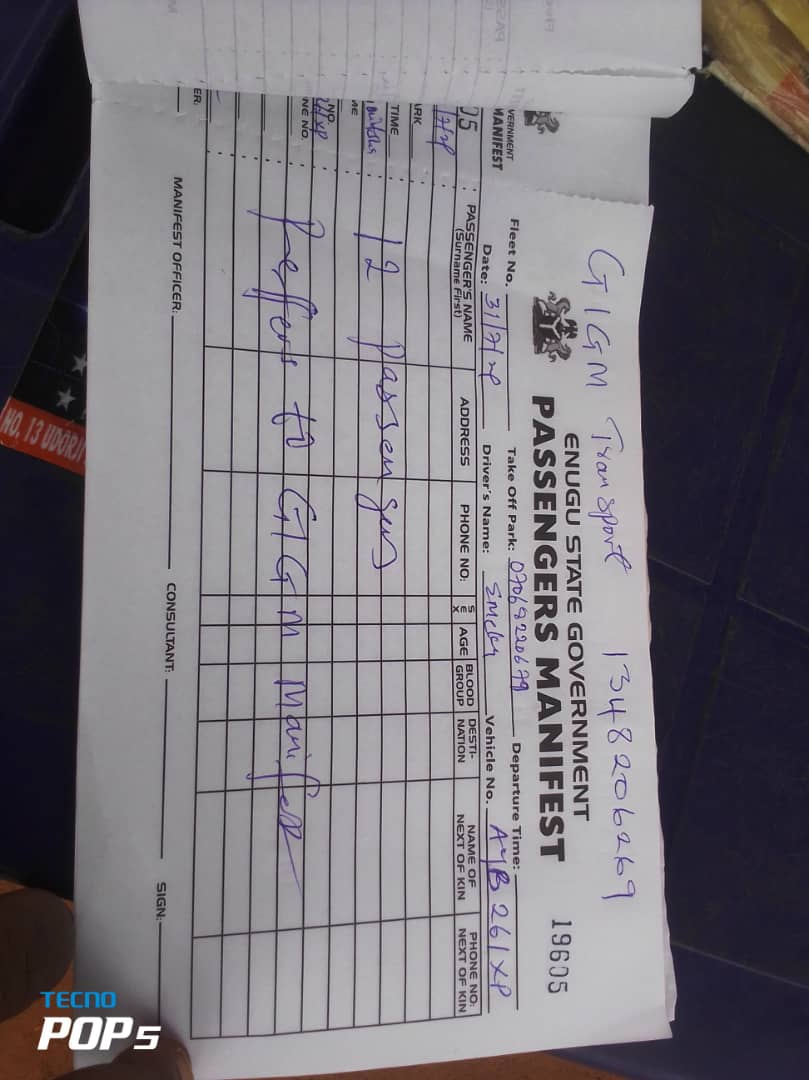 GIGM Transport 1348206269
ENUGU STATE GOVERNMENT
PASSENGERS MANIFEST 19605
Fleet No. Take Off Park: 07068220679 Departure Time:
Date: Driver's Name: Emeka Vehicle No. AYB 261XP
PASSENGER'S NAME (Surname First) ADDRESS PHONE NO. SEX AGE BLOOD GROUP DESTI-NATION NAME OF NEXT OF KIN PHONE NO: NEXT OF KIN
12 Passengers
Reffers to GIGM Manifest
MANIFEST OFFICER: CONSULTANT: SIGN:
VERNMENT
MANIFEST
05
ARK
TIME
NO.
NE NO.
ER:
NO. 13 UDORJI
TECNO
POP 5